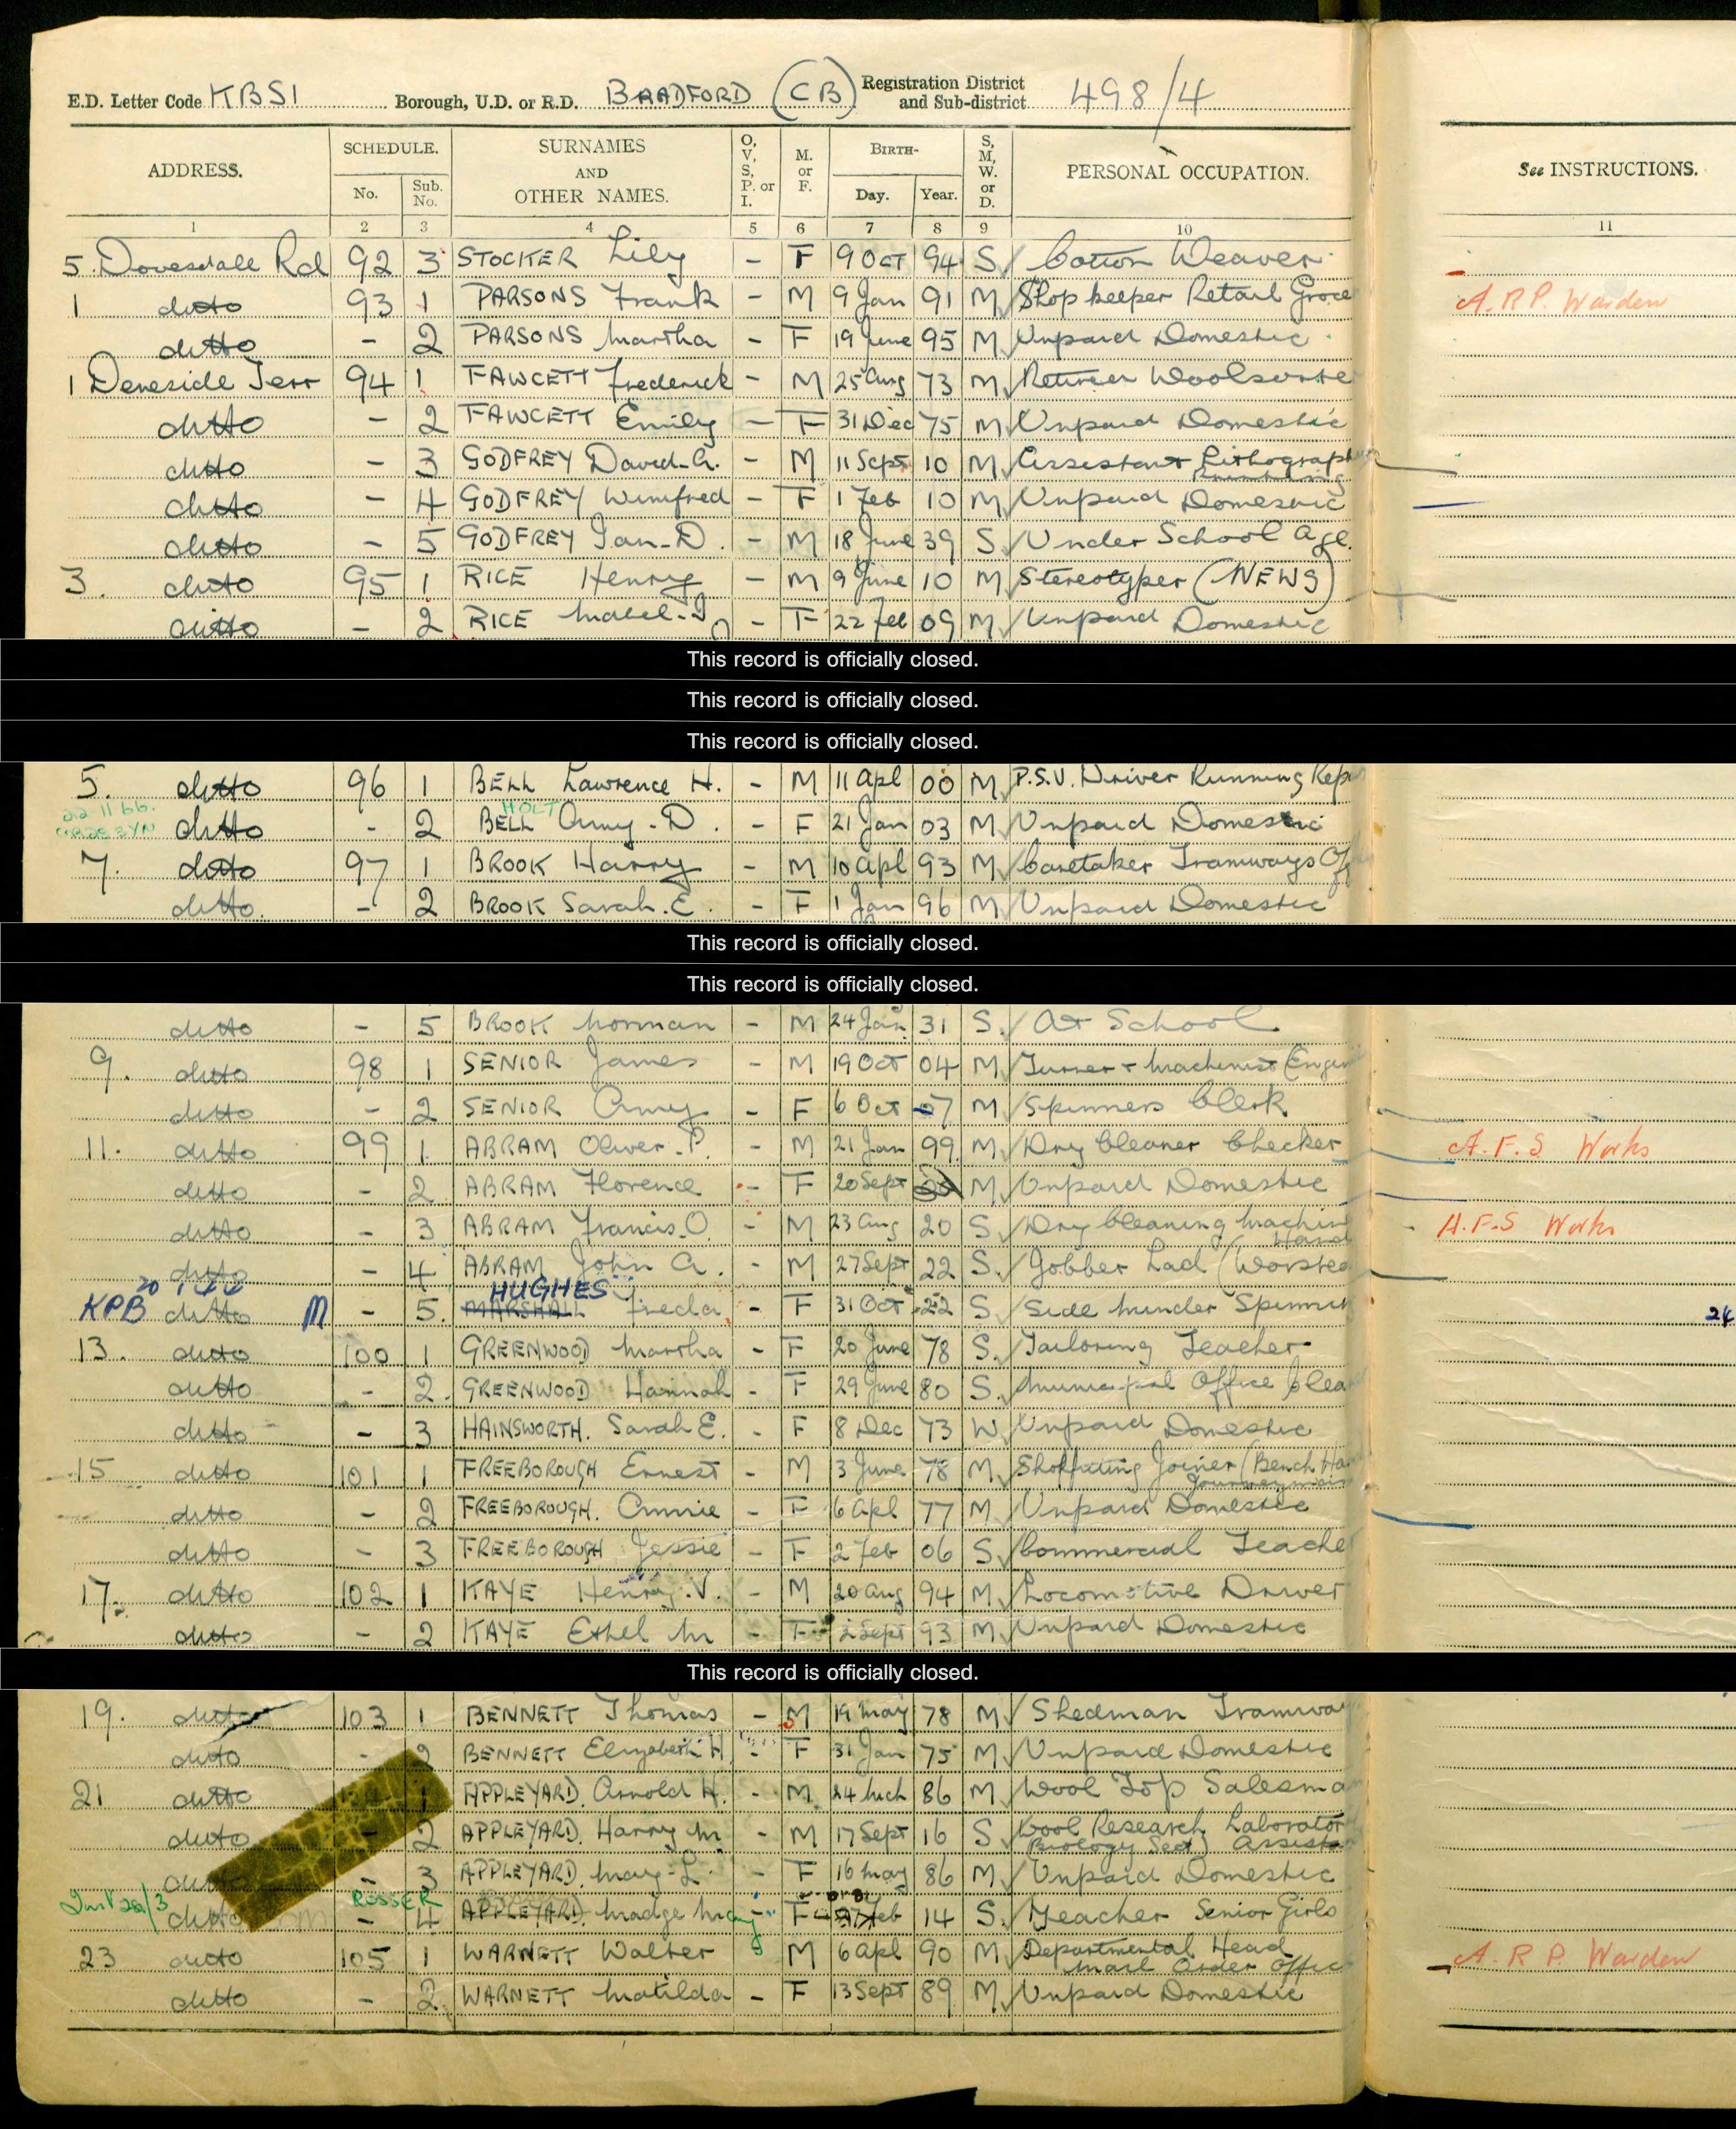 E.D. Letter Code KBSI Borough, U.D. or R.D. BRADFORD (CB) Registration District and Sub-district 498/4
ADDRESS. SCHEDULE. No. Sub. No. SURNAMES AND OTHER NAMES. O, V, S, P. or I. M. or F. BIRTH- Day. Year. S, M, W. or D. PERSONAL OCCUPATION. See INSTRUCTIONS.
1 2 3 4 5 6 7 8 9 10 11
5. Dovesdale Rd 92 3 STOCKER Lily - F 9 Oct 94 S Cotton Weaver
1 ditto 93 1 PARSONS Frank - M 9 Jan 91 M Shopkeeper Retail Groce A.R.P. Warden
ditto - 2 PARSONS Martha - F 19 June 95 M Unpaid Domestic
1 Deneside Terr 94 1 FAWCETT Frederick - M 25 Aug 73 M Retired Woolsorte
ditto - 2 FAWCETT Emily - F 31 Dec 75 M Unpaid Domestic
ditto - 3 GODFREY David-G. - M 11 Sept 10 M Assistant Lithograph
Printing
ditto - 4 GODFREY Winifred - F 1 Feb 10 M Unpaid Domestic
ditto - 5 GODFREY Ian-D. - M 18 June 39 S Under School Age.
3. ditto 95 1 RICE Henry - M 9 June 10 M Stereotyper (NEWS)
ditto - 2 RICE Mabel-I - F 22 Feb 09 M Unpaid Domestic
This record is officially closed.
This record is officially closed.
This record is officially closed.
5. ditto 96 1 BELL Lawrence H. - M 11 Apl 00 M P.S.V. Driver Running Rep
22 11 66. HOLT
ditto - 2 BELL Amy-D. - F 21 Jan 03 M Unpaid Domestic
7. ditto 97 1 BROOK Harry - M 10 Apl 93 M Caretaker Tramways Of
ditto. - 2 BROOK Sarah.E. - F 1 Jan 96 M Unpaid Domestic
This record is officially closed.
This record is officially closed.
ditto - 5 BROOK Norman - M 24 Jan 31 S. At School
9. ditto 98 1 SENIOR James - M 19 Oct 04 M Turner & Machinist (Engin
ditto - 2 SENIOR Amy - F 6 Oct 07 M Spinners Clerk
11. ditto 99 1. ABRAM Oliver-P. - M 21 Jan 99. M Dry Cleaner Checker A.F.S Works
ditto - 2 ABRAM Florence - F 20 Sept M Unpaid Domestic
ditto - 3 ABRAM Francis.O. - M 23 Aug 20 S. Dry Cleaning Machin A.F.S Works
Hand
ditto - 4 ABRAM John A. - M 27 Sept 22 S. Jobber Lad (Worsted
20 HUGHES
KPB ditto M - 5. MARSHALL Freda. - F 31 Oct 22 S Side Minder Spinnin 24
13. ditto 100 1 GREENWOOD Martha - F 20 June 78 S. Tailoring Teacher
ditto - 2. GREENWOOD Hannah - F 29 June 80 S. Municipal Office Clea
ditto - 3 HAINSWORTH. Sarah E. - F 8 Dec 73 W Unpaid Domestic
15 ditto 101 1 FREEBOROUGH Ernest - M 3 June 78 M. Shopfitting Joiner (Bench Ha
Journeyman
ditto - 2 FREEBOROUGH. Annie - F 6 Apl 77 M Unpaid Domestic
ditto - 3 FREEBOROUGH Jessie - F 2 Feb 06 S. Commercial Teache
17. ditto 102 1 KAYE Henry.V. - M 20 Aug 94 M. Locomotive Driver
ditto - 2 KAYE Ethel M - F 2 Sept 93 M. Unpaid Domestic
This record is officially closed.
19. ditto 103 1 BENNETT Thomas - M 19 May 78 M Shedman Tramway
ditto - 2 BENNETT Elizabeth H. - F 31 Jan 75 M Unpaid Domestic
21 ditto 1 APPLEYARD. Arnold H. - M. 24 Mch 86 M Wool Top Salesma
ditto - 2 APPLEYARD. Harry M - M 17 Sept 16 S Wool Research Laborator
(Biology Sect) Assista
ditto - 3 APPLEYARD. Mary-L. - F 16 May 86 M Unpaid Domestic
ROSSER
ditto - 4 APPLEYARD. Madge May - F Feb 14 S. Teacher Senior Girls
23 ditto 105 1 WARNETT Walter M 6 Apl 90 M Departmental Head
Mail Order Offic A.R.P. Warden
ditto - 2. WARNETT Matilda - F 13 Sept 89 M. Unpaid Domestic